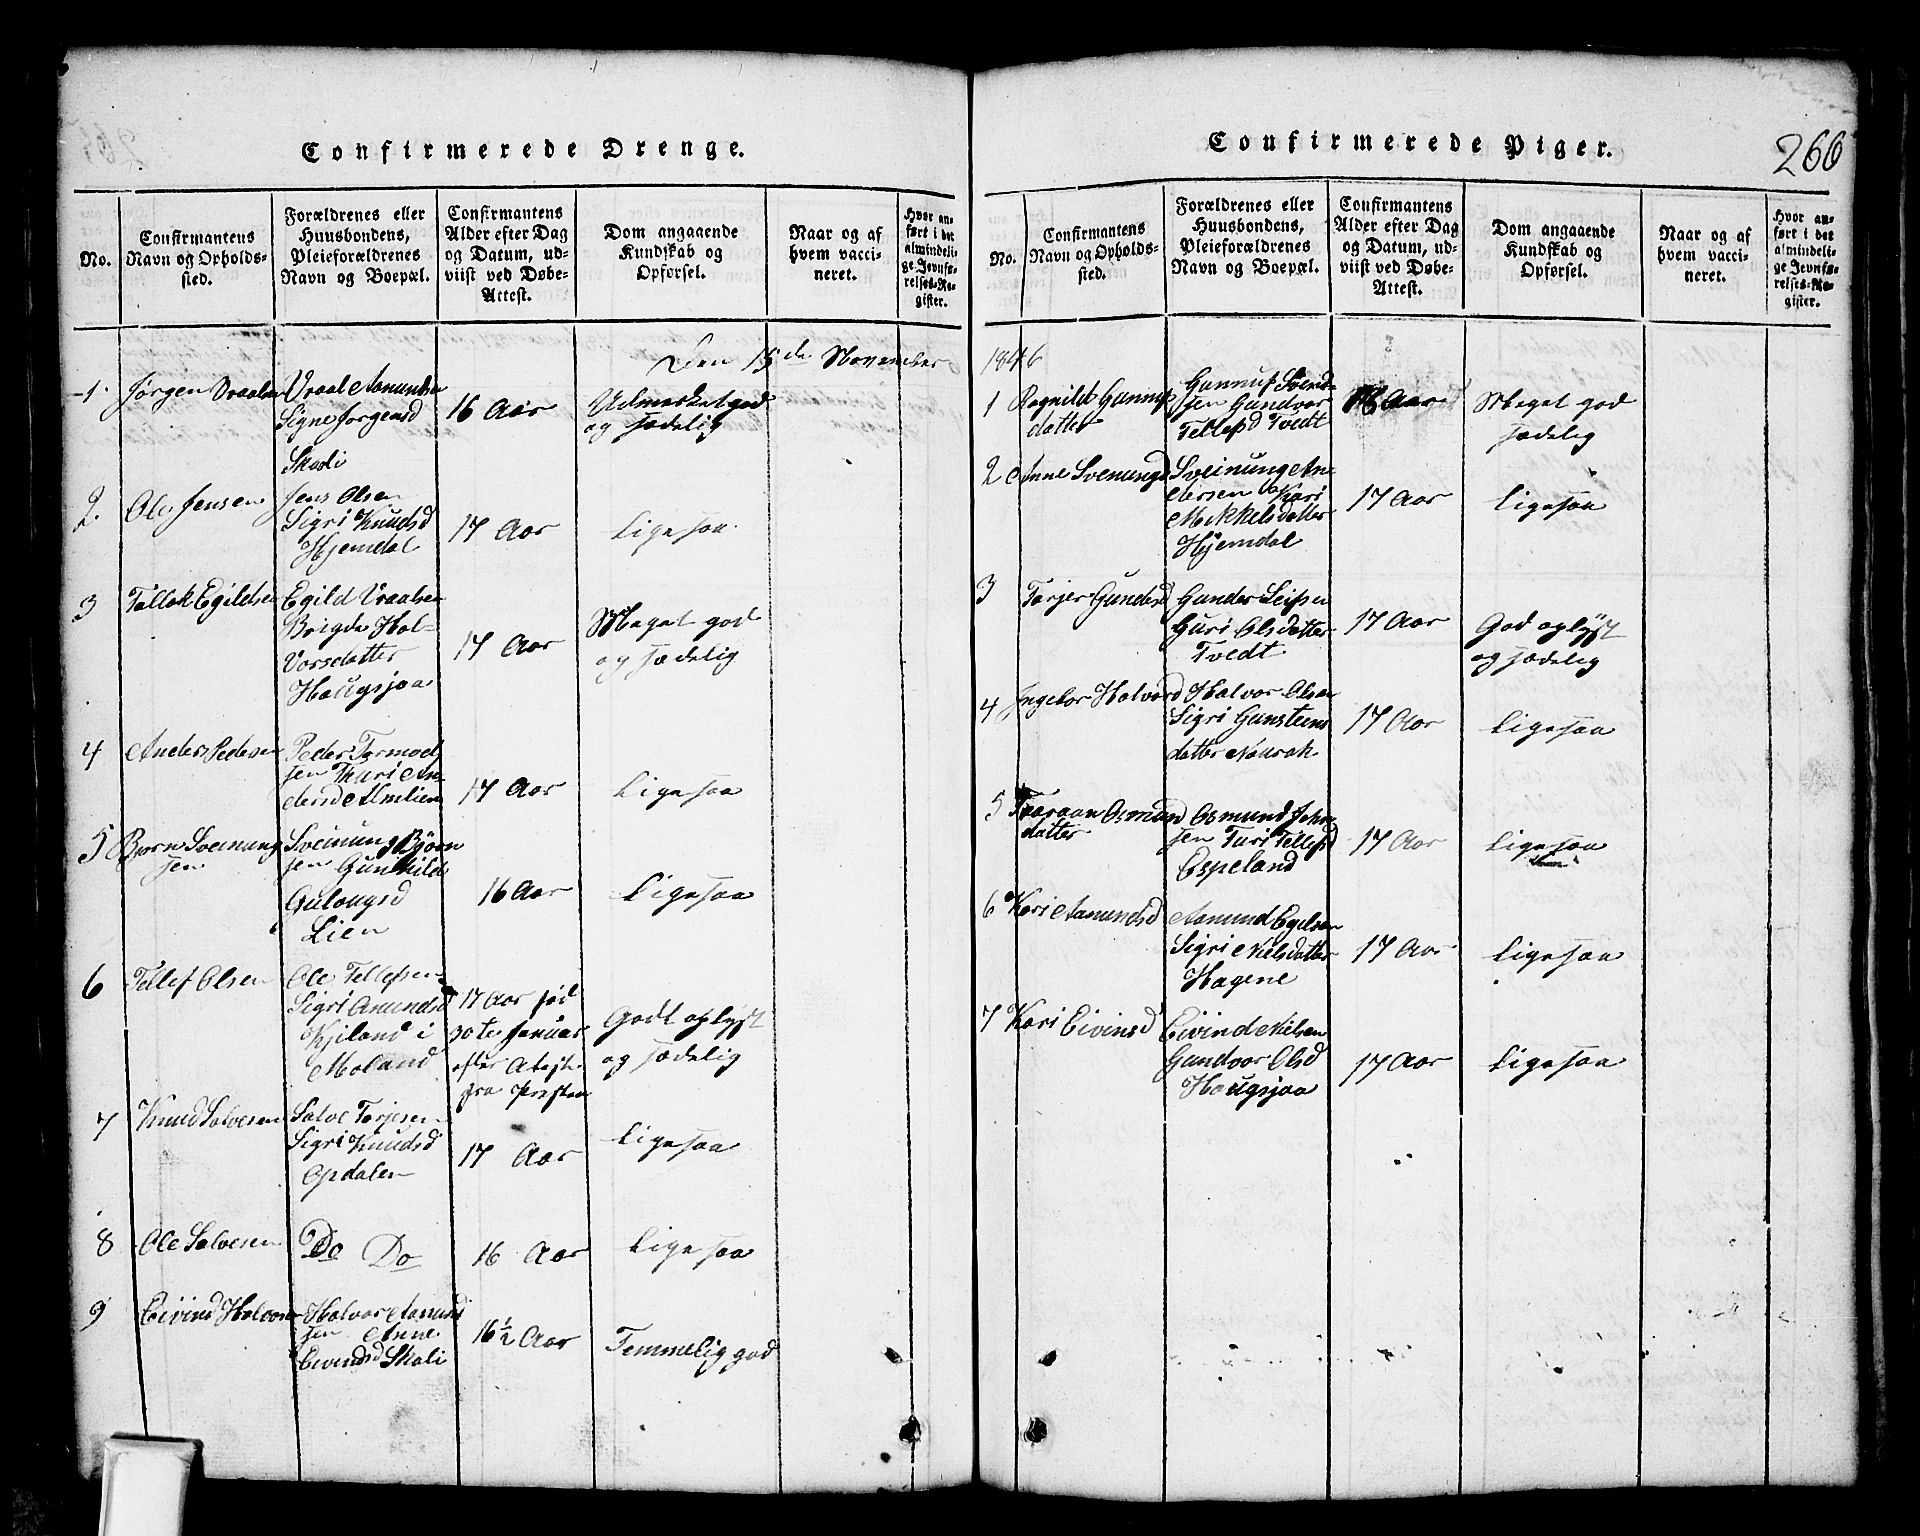 Confirmerede Drenge.
No.
Confirmantens
Navn og Opholds-
sted.
Forældrenes eller
Huusbondens,
Pleieforældrenes
Navn og Boepæl.
Confirmantens
Alder efter Dag
og Datum, ud-
viist ved Døbe-
Attest.
Dom angaaende
Kundskab og
Opførsel.
Naar og af
hvem vacci-
neret.
Hvor an-
ført i det
almindeli-
ge Jevnfø-
relses-Re-
gister.
Den 15de November
1
Jørgen Vraalsen
Vraal Asmundsen
Signe Jørgensd
Skuli
16 Aar
Udmærket god
og sædelig
2.
Ole Jensen
Jens Olsen
Sigri Knudsd
Hjemdal
17 Aar
Ligesaa
3
Tallak Egildsen
Egild Vraalsen
Brigde Hal-
vorsdatter
Haugsjaa
17 Aar
Meget god
og sædelig
4
Anders Pedersen
Peder Tormod
sen Thuri An
dersd Amlien
17 Aar
Ligesaa
5
Bjorn Sveinung
sen
Sveinung Bjørn
sen Gunhild
Aulougsd
Lien
16 Aar
Ligesaa
6
Tellef Olsen
Ole Tellefsen
Sigri Anundsd
Kjiland i
Moland
17 Aar fød
30te Januar
efter Atest
fra Præsten
Godt oplyst
og sædelig
7
Knud Salvesen
Salve Torjesen
Sigri Knudsd
Opdalen
17 Aar
Ligesaa
8
Ole Salvesen
Do Do
16 Aar
Ligesaa
9
Eivind Halvorsen
Halvor Aanund
sen Anne
Eivindsd Skali
16 1/2 Aar
Temmelig god
Confirmerede Piger.
266
No.
Confirmantens
Navn og Opholds-
sted.
Forældrenes eller
Huusbondens,
Pleieforældrenes
Navn og Boepæl.
Confirmantens
Alder efter Dag
og Datum, ud-
viist ved Døbe-
Attest.
Dom angaaende
Kundskab og
Opførsel.
Naar og af
hvem vacci-
neret.
Hvor an-
ført i det
almindeli-
ge Jevnfø-
relses-Re-
gister.
1846
1
Ragnild Gunnufs
datter
Gunnuf Svend-
sen Gundvor
Tellefsd Tvedt
Aar
Meget god
sædelig
2
Anne Svenungsd
Sveinung An
dersen Kari
Mikkelsdatter
Hjemdal
17 Aar
Ligesaa
3
Torjer Gundersd
Gunder Leifsen
Guri Olsdatter
Tvedt
17 Aar
God oplyst
og sædelig
4
Ingebor Halvord
Halvor Olsen
Sigri Gunsteins
datter Naurak
17 Aar
Ligesaa
5
Taaraan Osmund
datter
Osmund John
sen Turi Tellefsd
Espeland
17 Aar
Ligesaa
6
Kari Aamundsd
Aamund Egelsen
Sigri Nielsdatter
Hagene
17 Aar
Ligesaa
7
Kari Eivinsd
Eivind Nielsen
Gundvor Olsd
Haugsjaa
17 Aar
Ligesaa